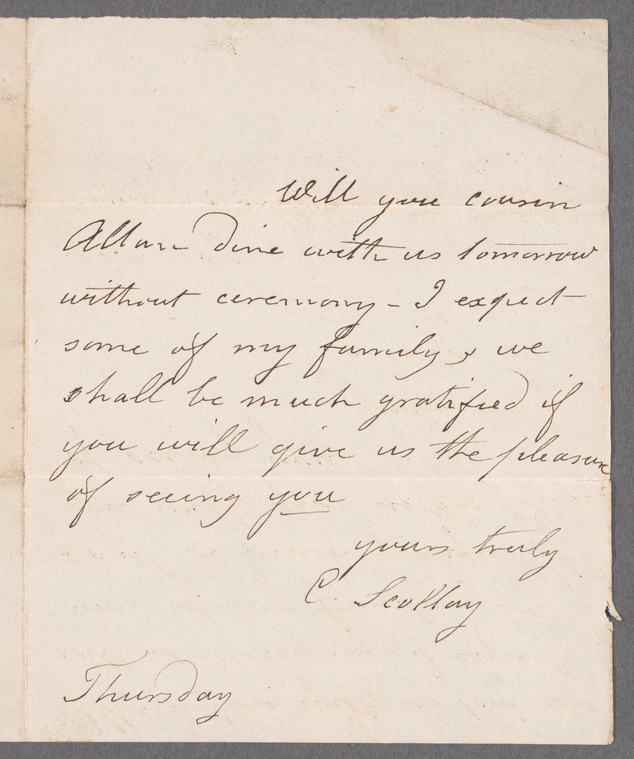 Will you cousin
Allan dine with us tomorrow
without ceremony - I expect
some of my family, & we
shall be much gratified if
you will give us the pleasure
of seeing you
yours truly
C. Scollay
Thursday